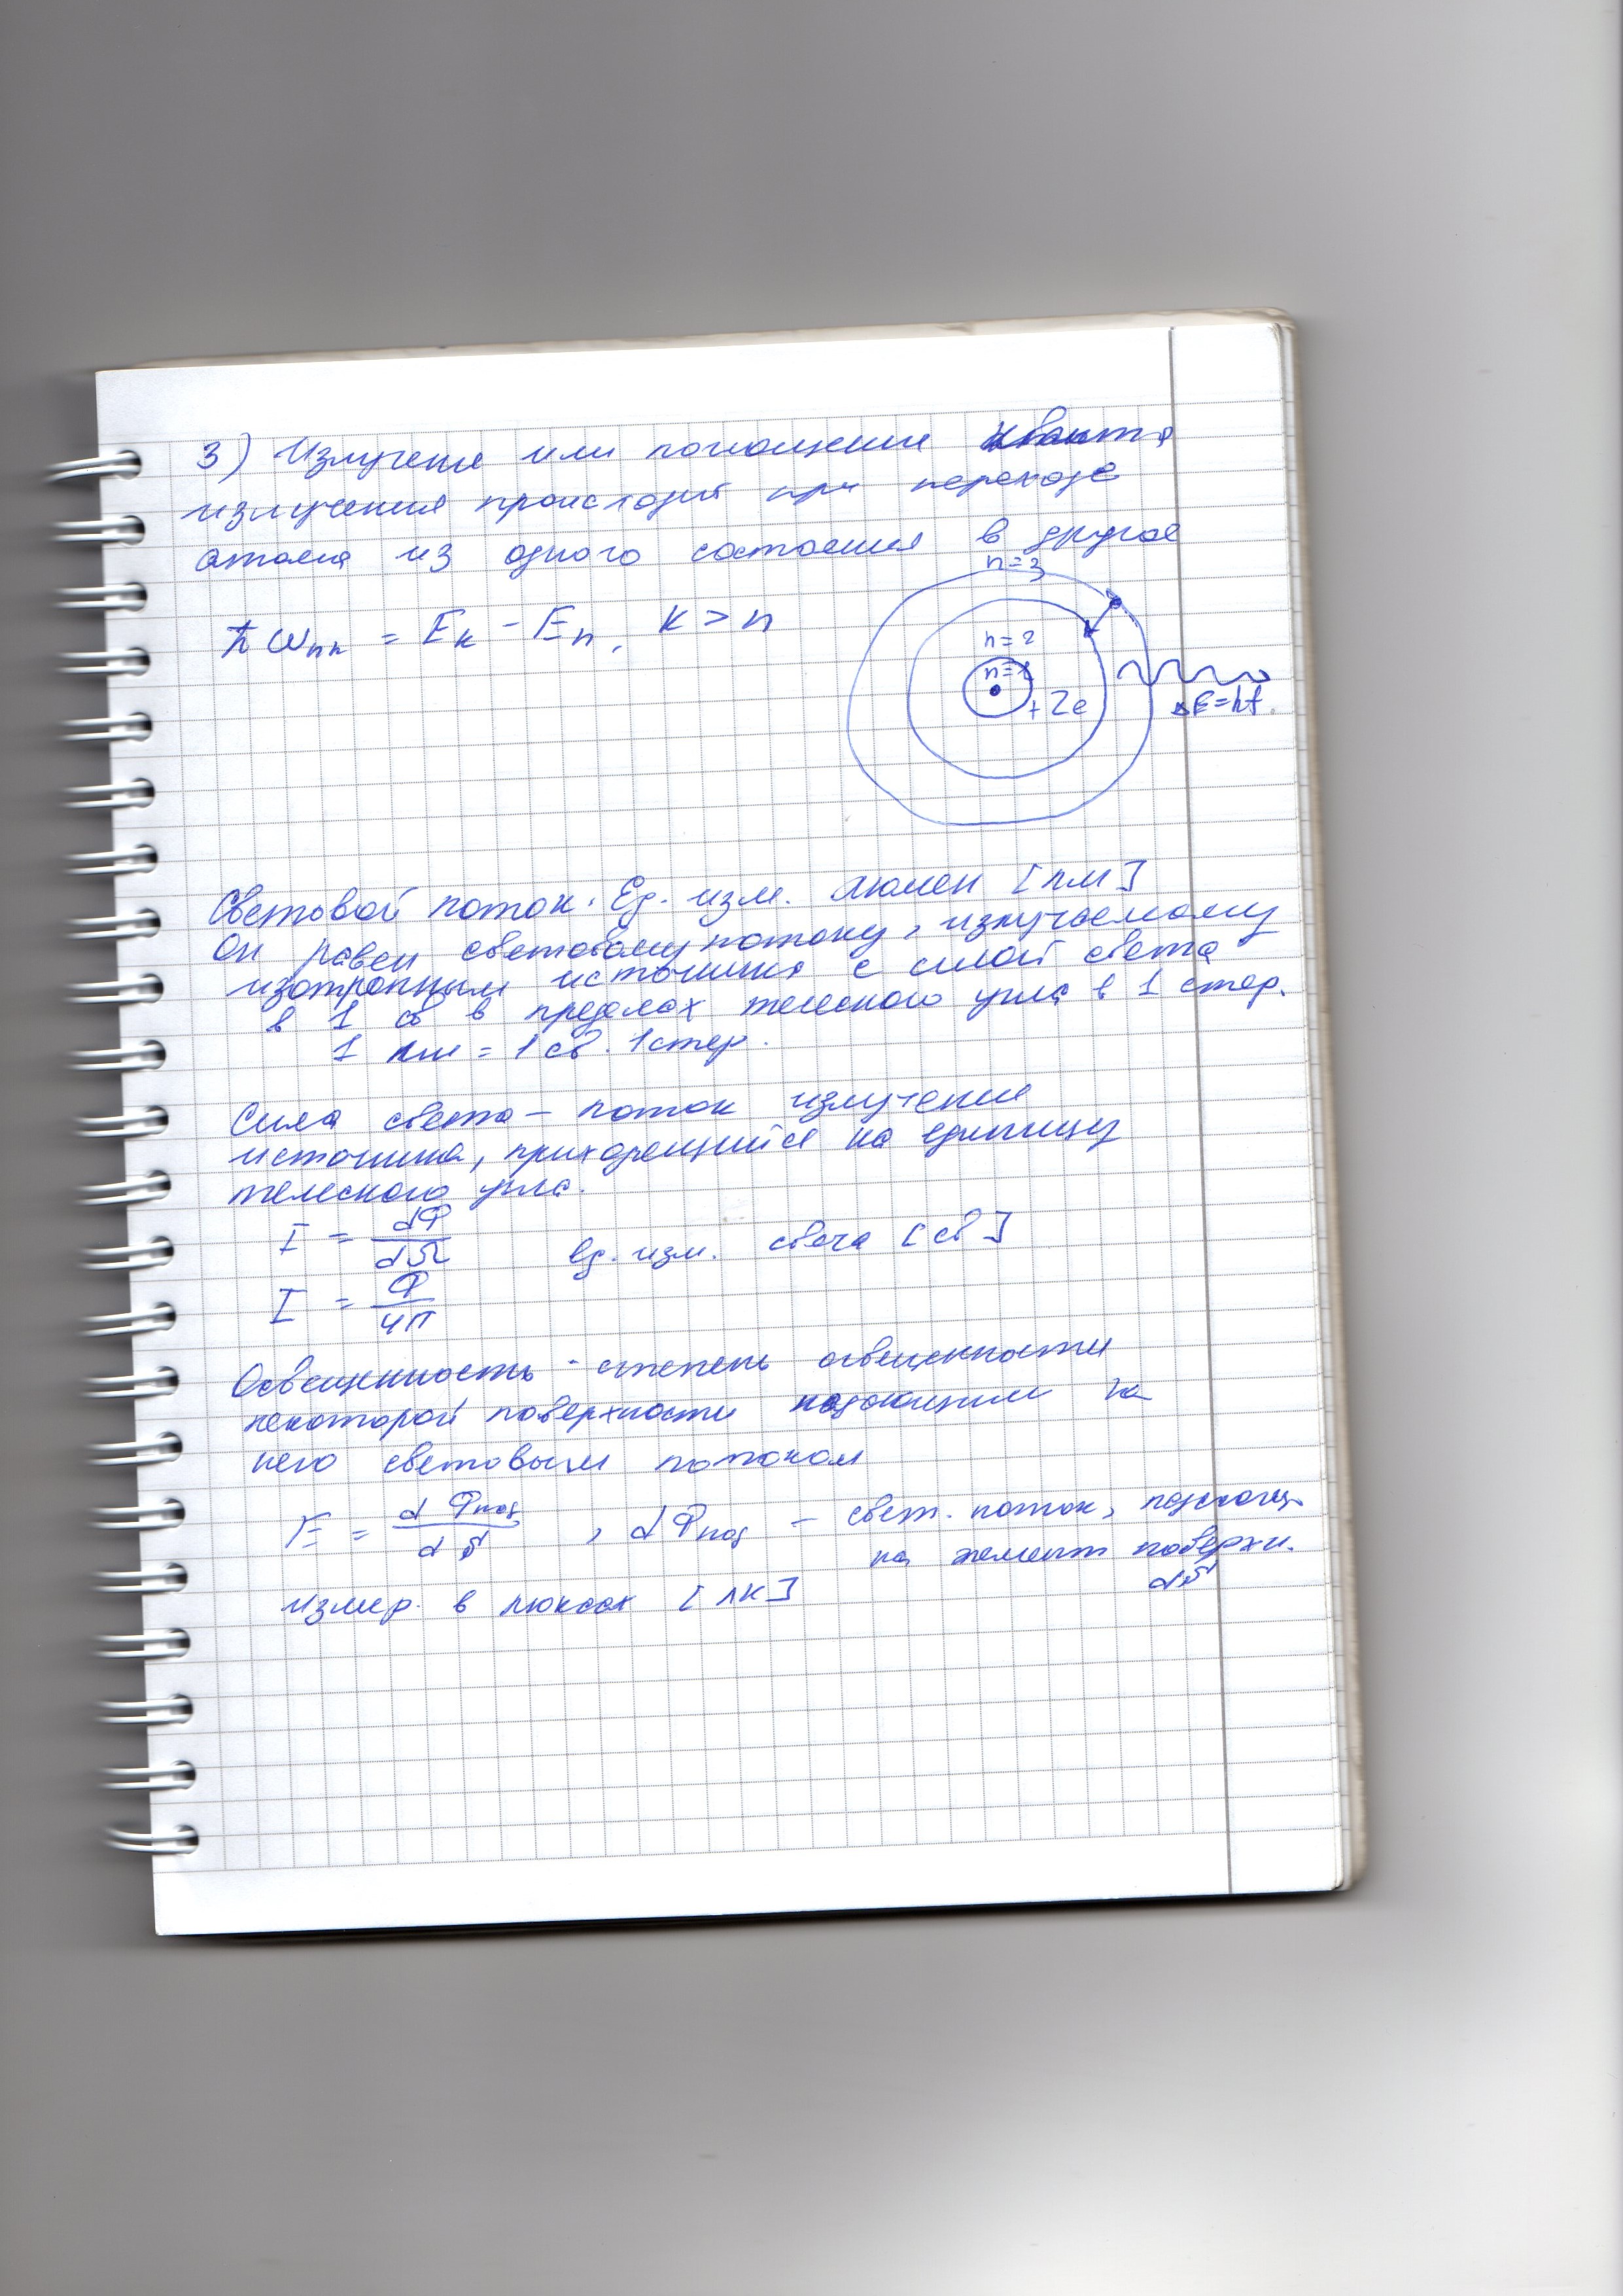 3) Излучение или поглощение кванта
излучения происходит при переходе
атома из одного состояния в другое
ħωnk = Ek - En, k > n
n=3
n=2
n=1
+Ze
ΔE=hf.
Световой поток. Ед. изм. люмен [лм]
Он равен световому потоку, излучаемому
изотропным источника с силой света
в 1 св в пределах телесного угла в 1 стер.
1 лм = 1 св · 1 стер.
Сила света – поток излучения
источника, приходящийся на единицу
телесного угла.
I = dФ/dΩ ед. изм. свеча [св]
I = Ф/4π
Освещенность - степень освещенности
некоторой поверхности падающим на
него световым потоком
E = dФпад/dS, dФпад – свет. поток, падающ.
на элемент поверхн.
dS
измер. в люксах [лк]